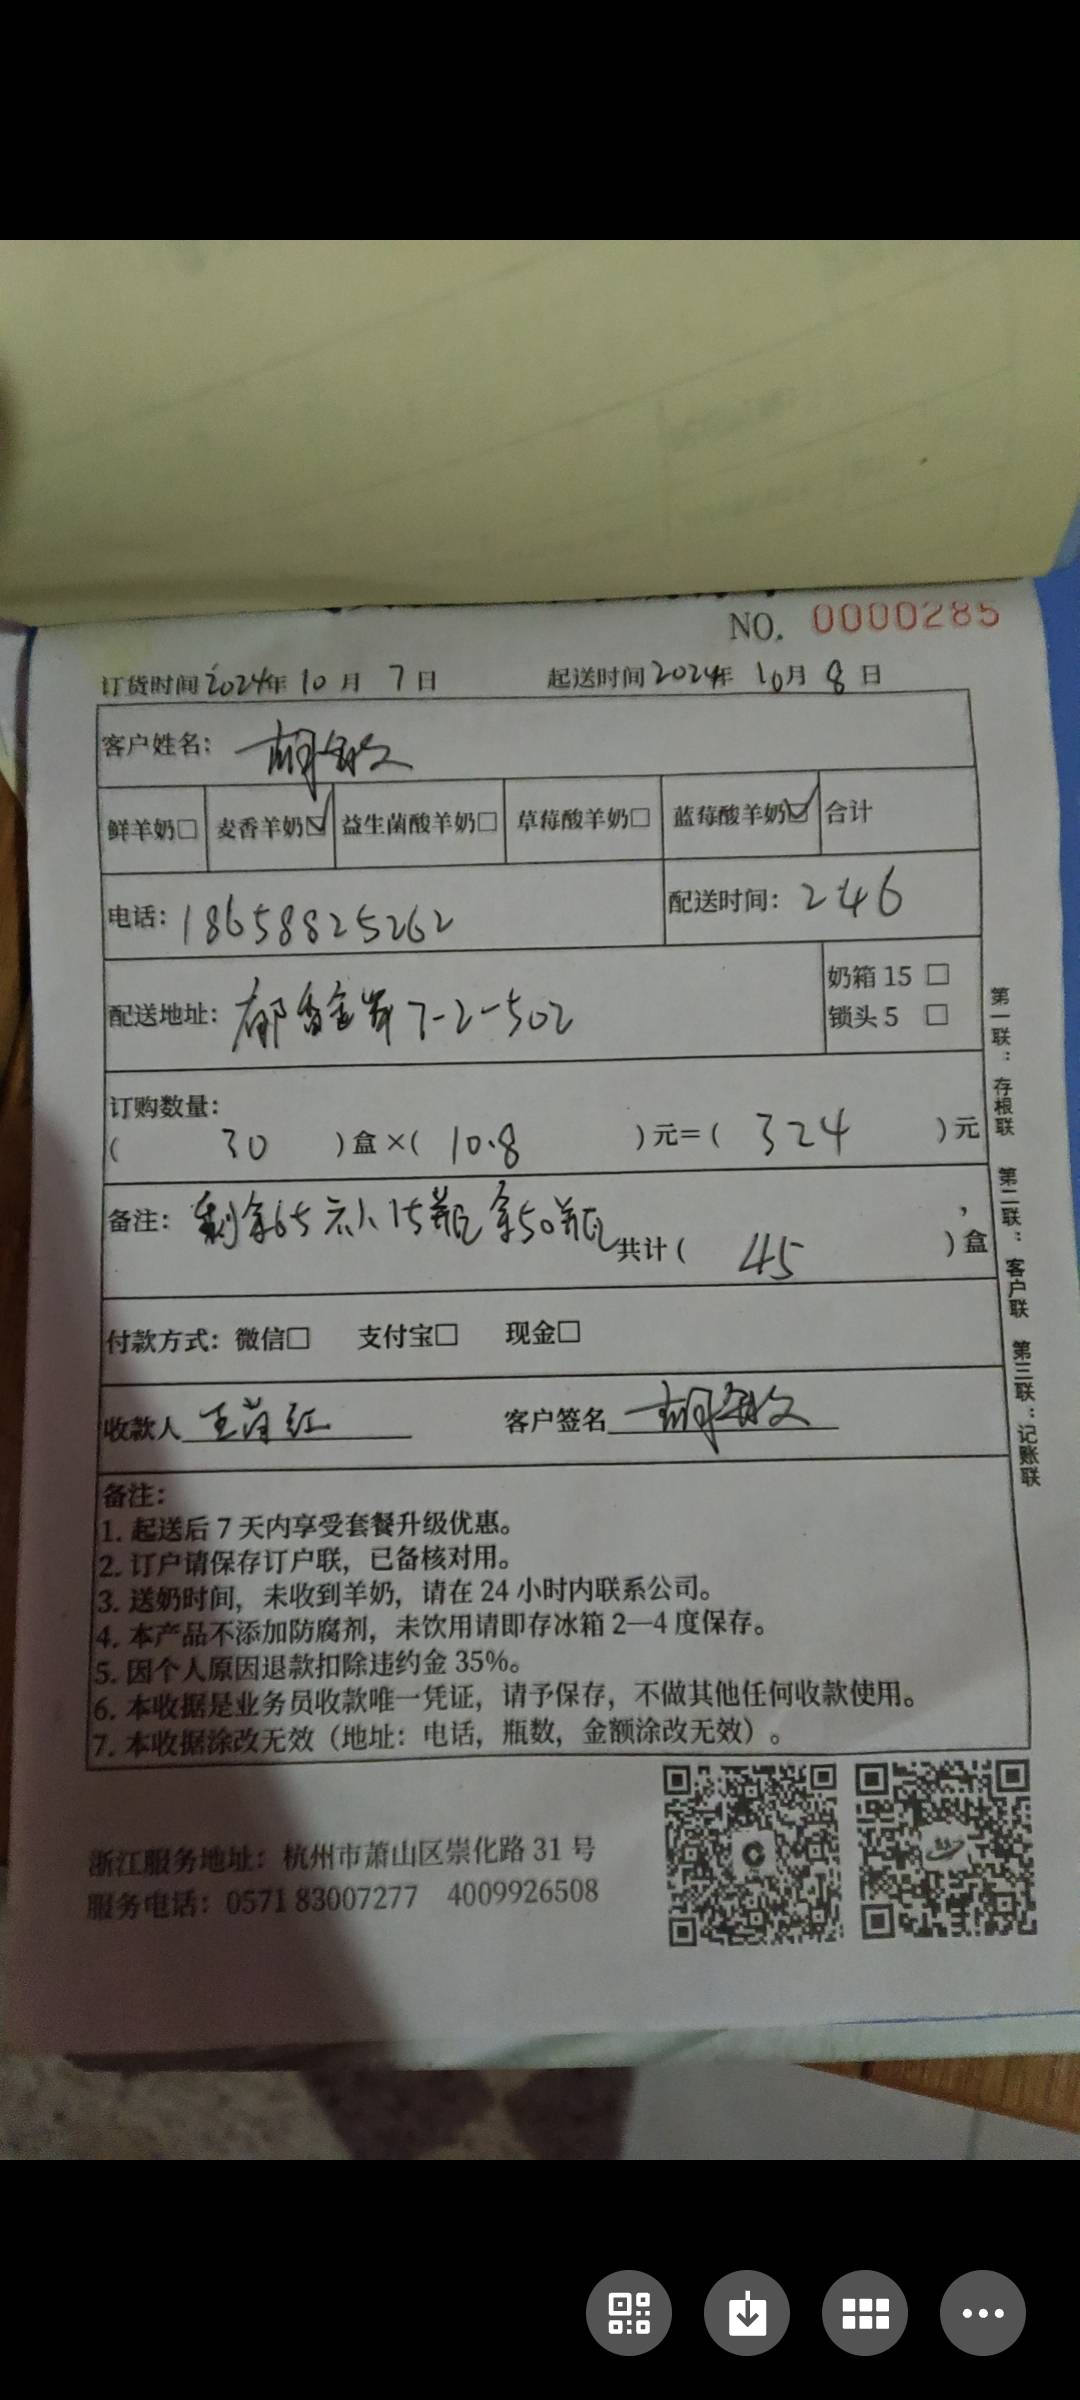 NO. 0000285
订货时间2024年10月7日 起送时间2024年10月8日
客户姓名：胡敏文
鲜羊奶□ 麦香羊奶☑ 益生菌酸羊奶□ 草莓酸羊奶□ 蓝莓酸羊奶☑ 合计
电话：18658825262 配送时间：246
配送地址：郁香金岸7-2-502
奶箱 15 □
锁头 5 □
订购数量：
（ 30 ）盒×（ 10.8 ）元=（ 324 ）元
备注：剩余65 15瓶 50瓶 共计（ 45 ）盒
付款方式：微信□ 支付宝□ 现金□
收款人 王 红 客户签名 胡敏文
备注：
1. 起送后 7 天内享受套餐升级优惠。
2. 订户请保存订户联，已备核对用。
3. 送奶时间，未收到羊奶，请在 24 小时内联系公司。
4. 本产品不添加防腐剂，未饮用请即存冰箱 2—4 度保存。
5. 因个人原因退款扣除违约金 35%。
6. 本收据是业务员收款唯一凭证，请予保存，不做其他任何收款使用。
7. 本收据涂改无效（地址：电话，瓶数，金额涂改无效）。
第一联：存根联 第二联：客户联 第三联：记账联
浙江服务地址：杭州市萧山区崇化路 31 号
服务电话：0571 83007277 4009926508